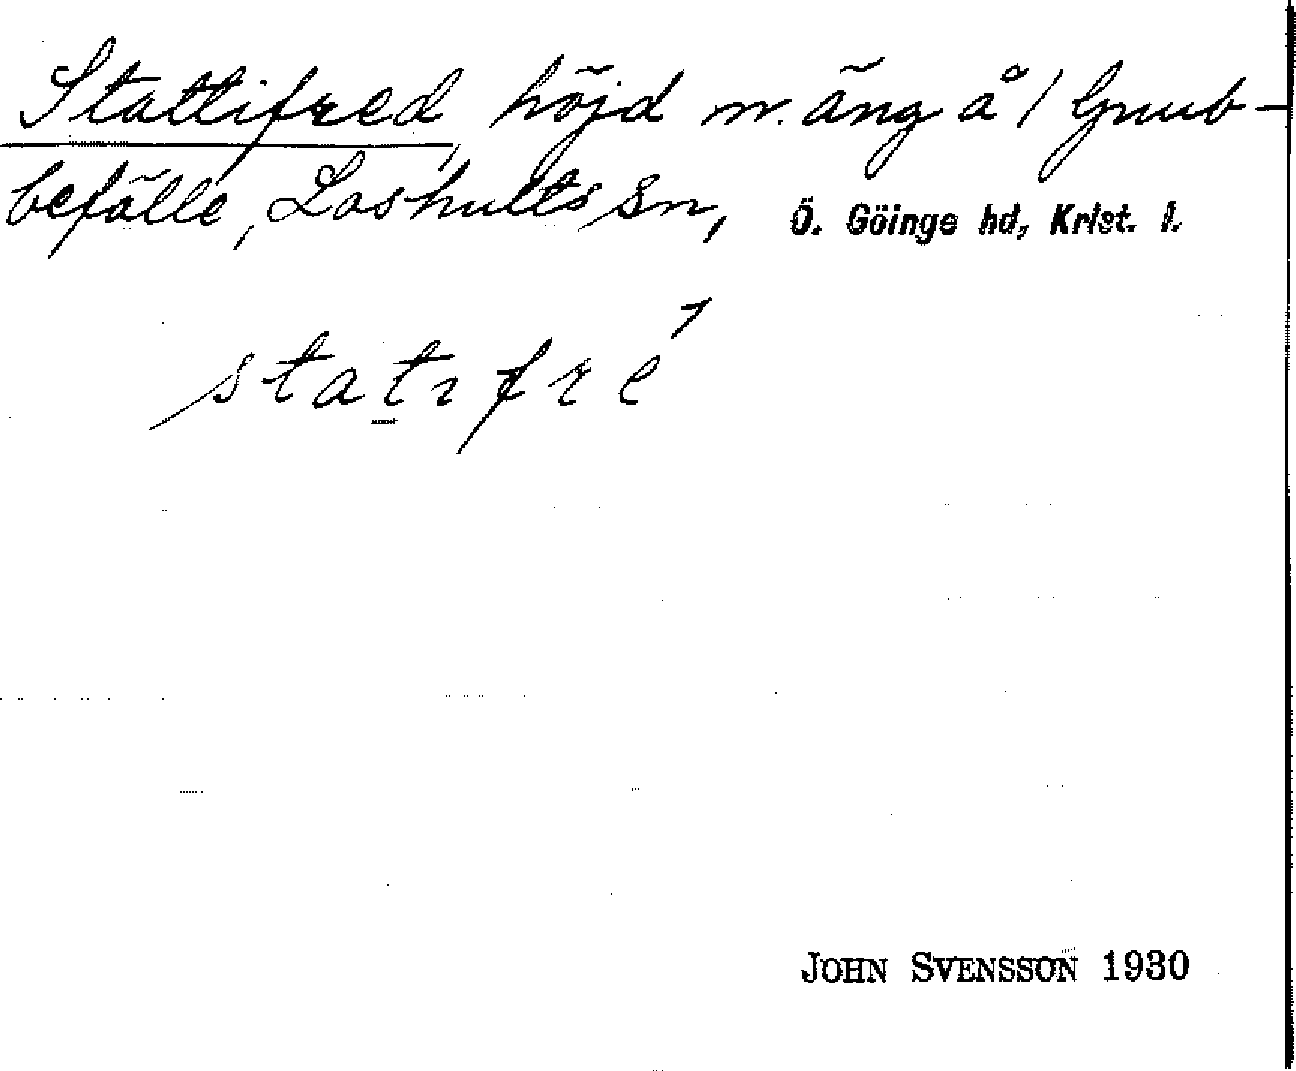 Stattifred, höjd m. äng å / Grub-
befälle, Loshults Sn, Ö. Göinge hd, Krist. l.
statifré
JOHN SVENSSON 1930